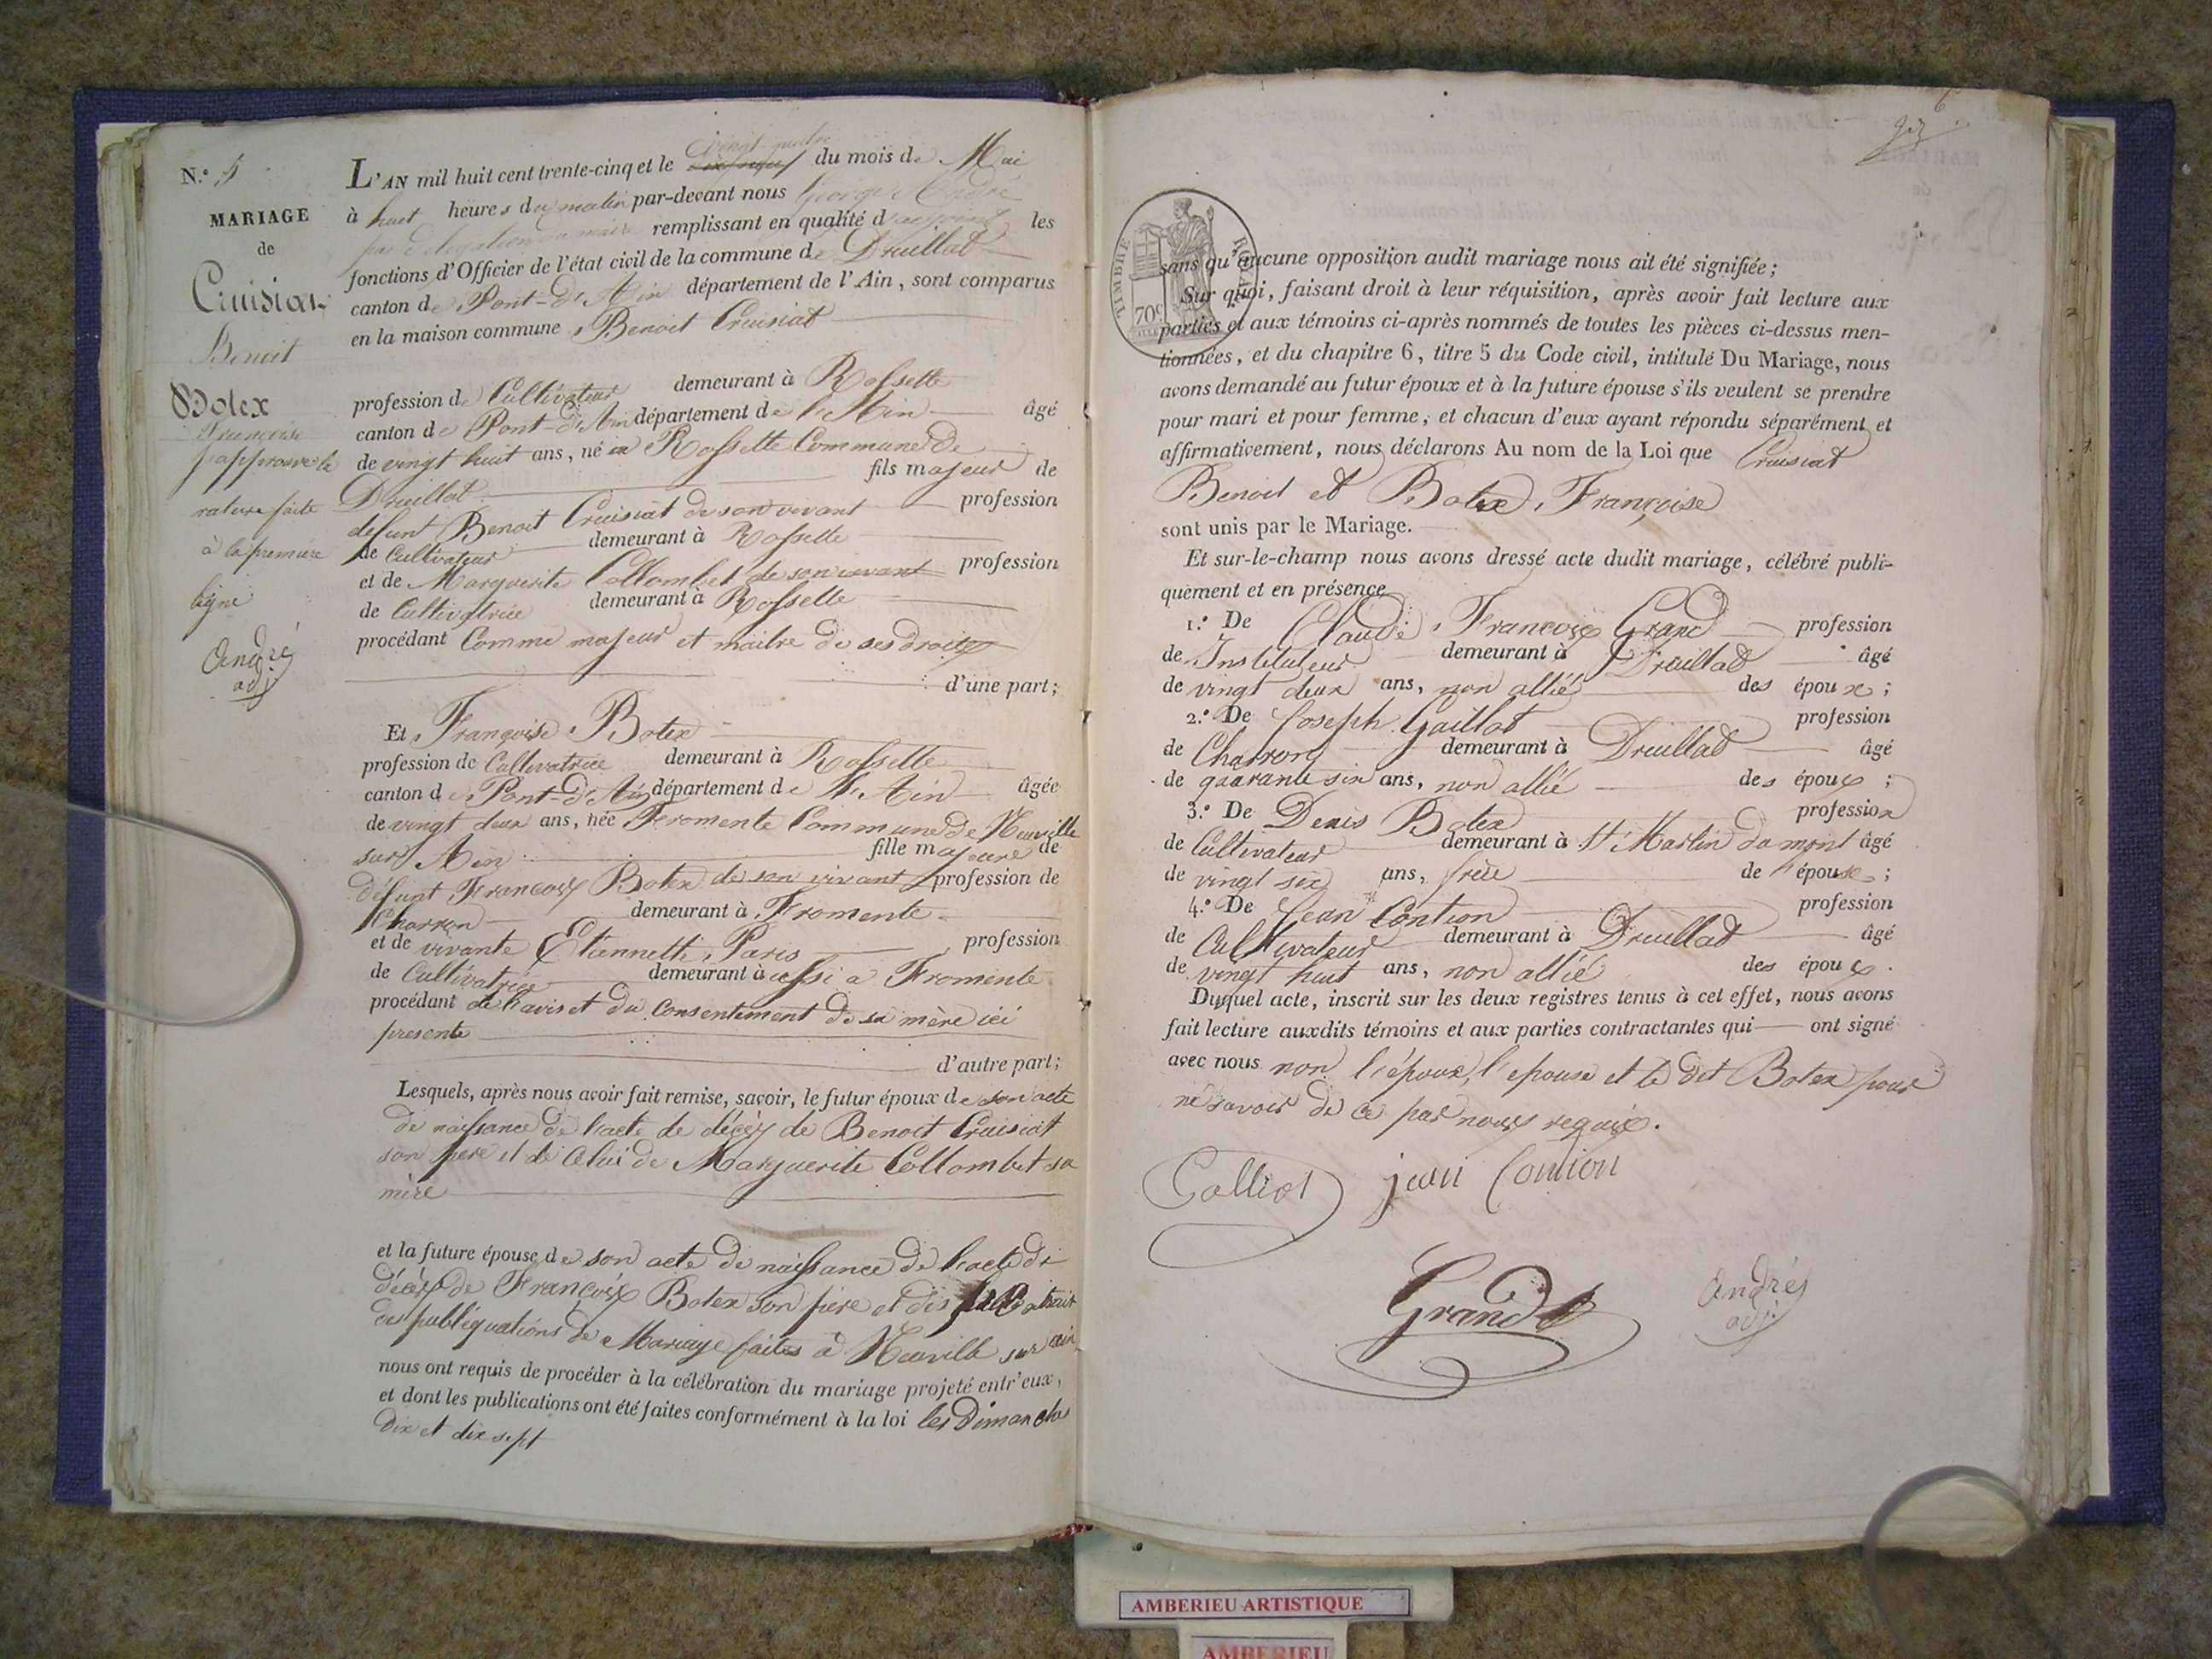 N.o
MARIAGE
de
Cruisiat
Benoit
Botex
Françoise
j'approuve la
rature faite
à la première
ligne
André
adj
vingt quatre
L'AN mil huit cent trente-cinq et le dix neuf du mois de Mai
à huit heures du matin par-devant nous George André
par délégation du maire remplissant en qualité d'adjoint les
fonctions d'Officier de l'état civil de la commune de Druillat
canton de Pont-d'Ain département de l'Ain, sont comparus
en la maison commune, Benoit Cruisiat
profession de Cultivateur demeurant à Rossette
canton de Pont-d'Ain département de l'Ain âgé
de vingt huit ans, né à Rossette Commune de
Druillat fils majeur de
defunt Benoit Cruisiat de son vivant profession
de Cultivateur demeurant à Rossette
et de Marguerite Collombet de son vivant profession
de Cultivatrice demeurant à Rossette
procédant Comme majeur et maitre de ses droits
d'une part;
Et Françoise Botex
profession de Cultivatrice demeurant à Rossette
canton de Pont-d'Ain département de l'Ain âgée
de vingt deux ans, née Fromente Commune de Neuville
sur Ain fille majeure de
défunt François Botex de son vivant profession de
Charron demeurant à Fromente
et de vivante Etiennette Paris profession
de Cultivatrice demeurant à aussi a Fromente
procédant de l'avis et du Consentement de sa mère ici
presente
d'autre part;
Lesquels, après nous avoir fait remise, savoir, le futur époux de son acte
de naissance de l'acte de décès de Benoit Cruisiat
son père et de Celui de Marguerite Collombet sa
mère
et la future épouse de son acte de naissance de l'acte de
décès de François Botex son père et des extrait
des publiquations de Mariage faites à Neuville sur ain
nous ont requis de procéder à la célébration du mariage projeté entr'eux,
et dont les publications ont été faites conformément à la loi les Dimanches
dix et dix sept
6
TIMBRE ROYAL
70c
sans qu'aucune opposition audit mariage nous ait été signifiée;
Sur quoi, faisant droit à leur réquisition, après avoir fait lecture aux
parties et aux témoins ci-après nommés de toutes les pièces ci-dessus men-
tionnées, et du chapitre 6, titre 5 du Code civil, intitulé Du Mariage, nous
avons demandé au futur époux et à la future épouse s'ils veulent se prendre
pour mari et pour femme; et chacun d'eux ayant répondu séparément et
affirmativement, nous déclarons Au nom de la Loi que Cruisiat
Benoit et Botex, Françoise
sont unis par le Mariage.
Et sur-le-champ nous avons dressé acte dudit mariage, célébré publi-
quement et en présence
1.o De Claude, François Grand profession
de Instituteur demeurant à Druillat âgé
de vingt deux ans, non allié des époux;
2.o De Joseph Gaillot profession
de Charron demeurant à Druillat âgé
de quarante six ans, non allié des époux;
3.o De Denis Botex profession
de Cultivateur demeurant à St Martin du mont âgé
de vingt six ans, frère de l'épouse;
4.o De Jean Contion profession
de Cultivateur demeurant à Druillat âgé
de vingt huit ans, non allié des époux.
Duquel acte, inscrit sur les deux registres tenus à cet effet, nous avons
fait lecture auxdits témoins et aux parties contractantes qui ont signé
avec nous non l'époux, l'epouse et le dit Botex pour
ne savoir de ce par nous requis.
Galliot jean Contion
Grand André
adj
AMBERIEU ARTISTIQUE
AMBERIEU